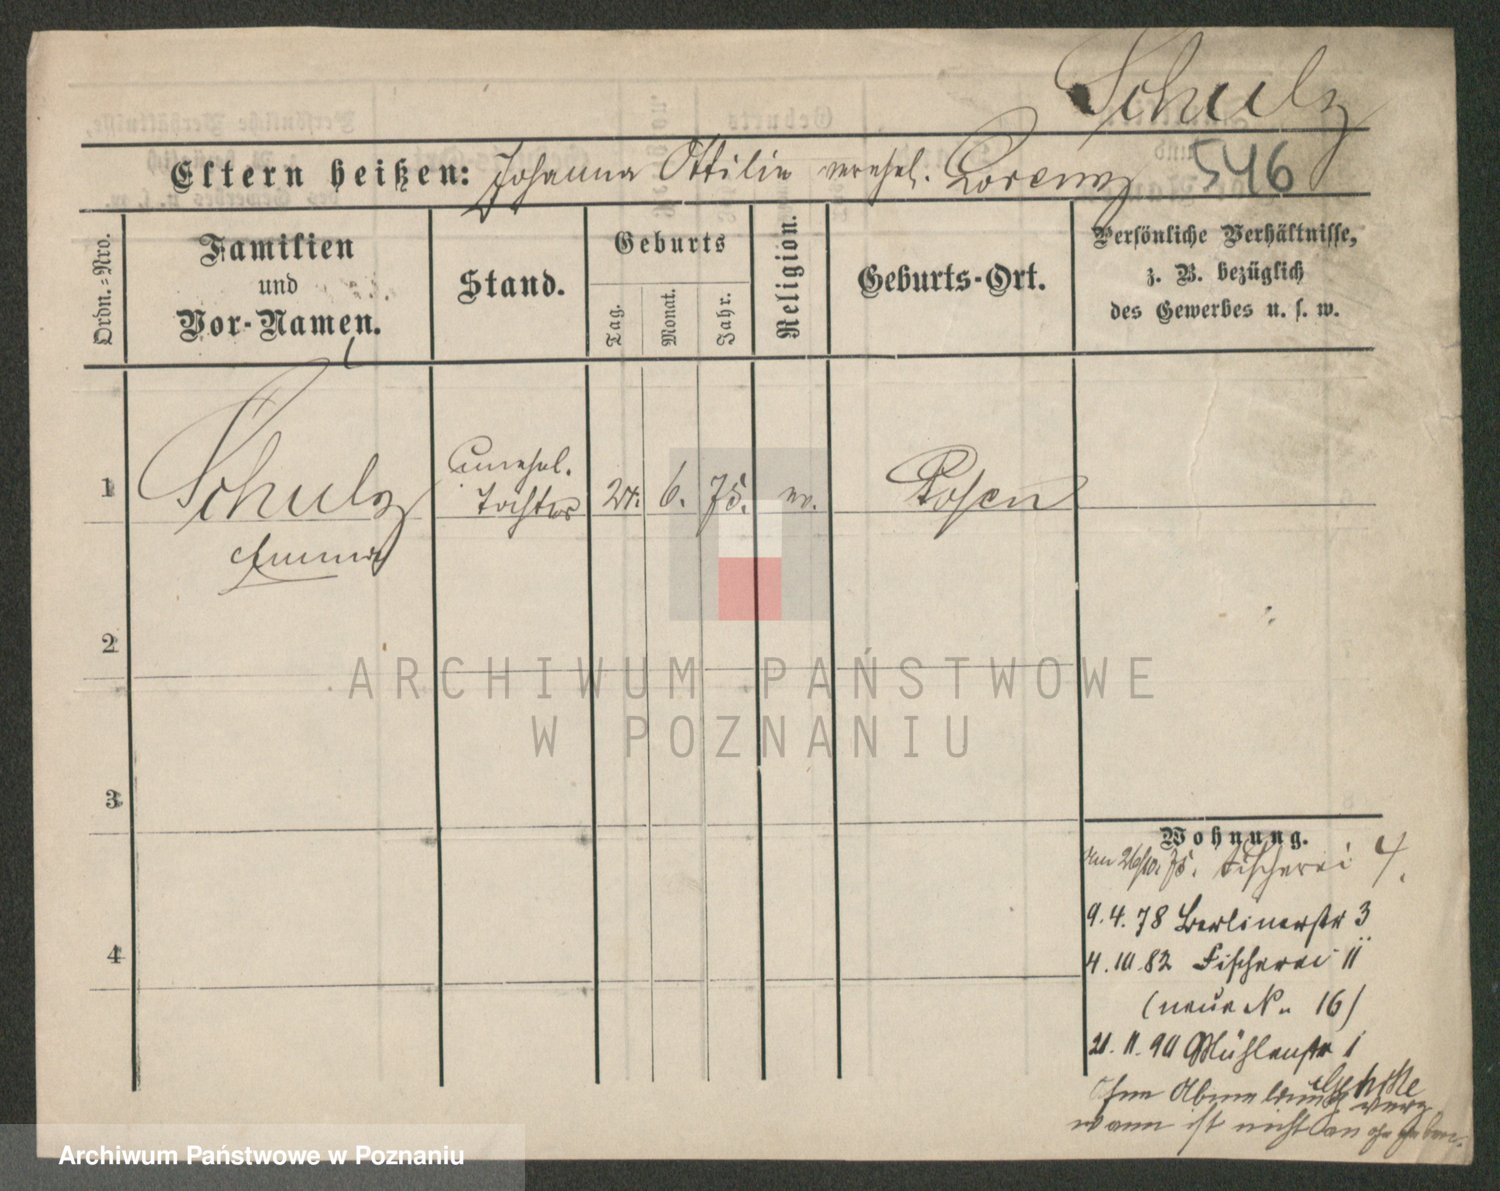 Schulz
Eltern heißen: Johanna Ottilie verehel. Lorenz 546
Ordn.-Nro.
Familien
und
Vor-Namen.
Stand.
Geburts
Tag.
Monat.
Jahr.
Religion.
Geburts-Ort.
Persönliche Verhältnisse,
z. B. bezüglich
des Gewerbes u. s. w.
1
Schulz
Emma
unehel.
Tochter
24. 6. 75. ev. Posen
2
3
4
Wohnung.
Fischerei 4.
9. 4. 78 Berlinerstr 3
4. 10 82 Fischerei 11
(neue No 16)
21. 11. 90 Mühlenstr 1
Ohne Abmeldung verz.
wann ist nicht angegeben.
ARCHIWUM PAŃSTWOWE
W POZNANIU
Archiwum Państwowe w Poznaniu